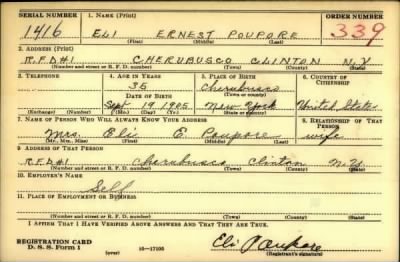 SERIAL NUMBER 1. NAME (Print) ORDER NUMBER
1416 ELI ERNEST POUPORE 339
(First) (Middle) (Last)
2. ADDRESS (Print)
R.F.D#1 CHERUBUSCO CLINTON N.Y
(Number and street or R. F. D. number) (Town) (County) (State)
3. TELEPHONE 4. AGE IN YEARS 5. PLACE OF BIRTH 6. COUNTRY OF CITIZENSHIP
35 Cherubusco
DATE OF BIRTH (Town or county)
Sept 19 1905 New York United States
(Exchange) (Number) (Mo.) (Day) (Yr.) (State or country)
7. NAME OF PERSON WHO WILL ALWAYS KNOW YOUR ADDRESS 8. RELATIONSHIP OF THAT PERSON
Mrs. Eli E. Poupore wife
(Mr., Mrs., Miss) (First) (Middle) (Last)
9. ADDRESS OF THAT PERSON
R.F.D#1 Cherubusco Clinton N.Y.
(Number and street or R. F. D. number) (Town) (County) (State)
10. EMPLOYER'S NAME
Self
11. PLACE OF EMPLOYMENT OR BUSINESS
(Number and street or R. F. D. number) (Town) (County) (State)
I AFFIRM THAT I HAVE VERIFIED ABOVE ANSWERS AND THAT THEY ARE TRUE.
REGISTRATION CARD
D. S. S. Form 1 (over) 16-17105 Eli Poupore
(Registrant's signature)